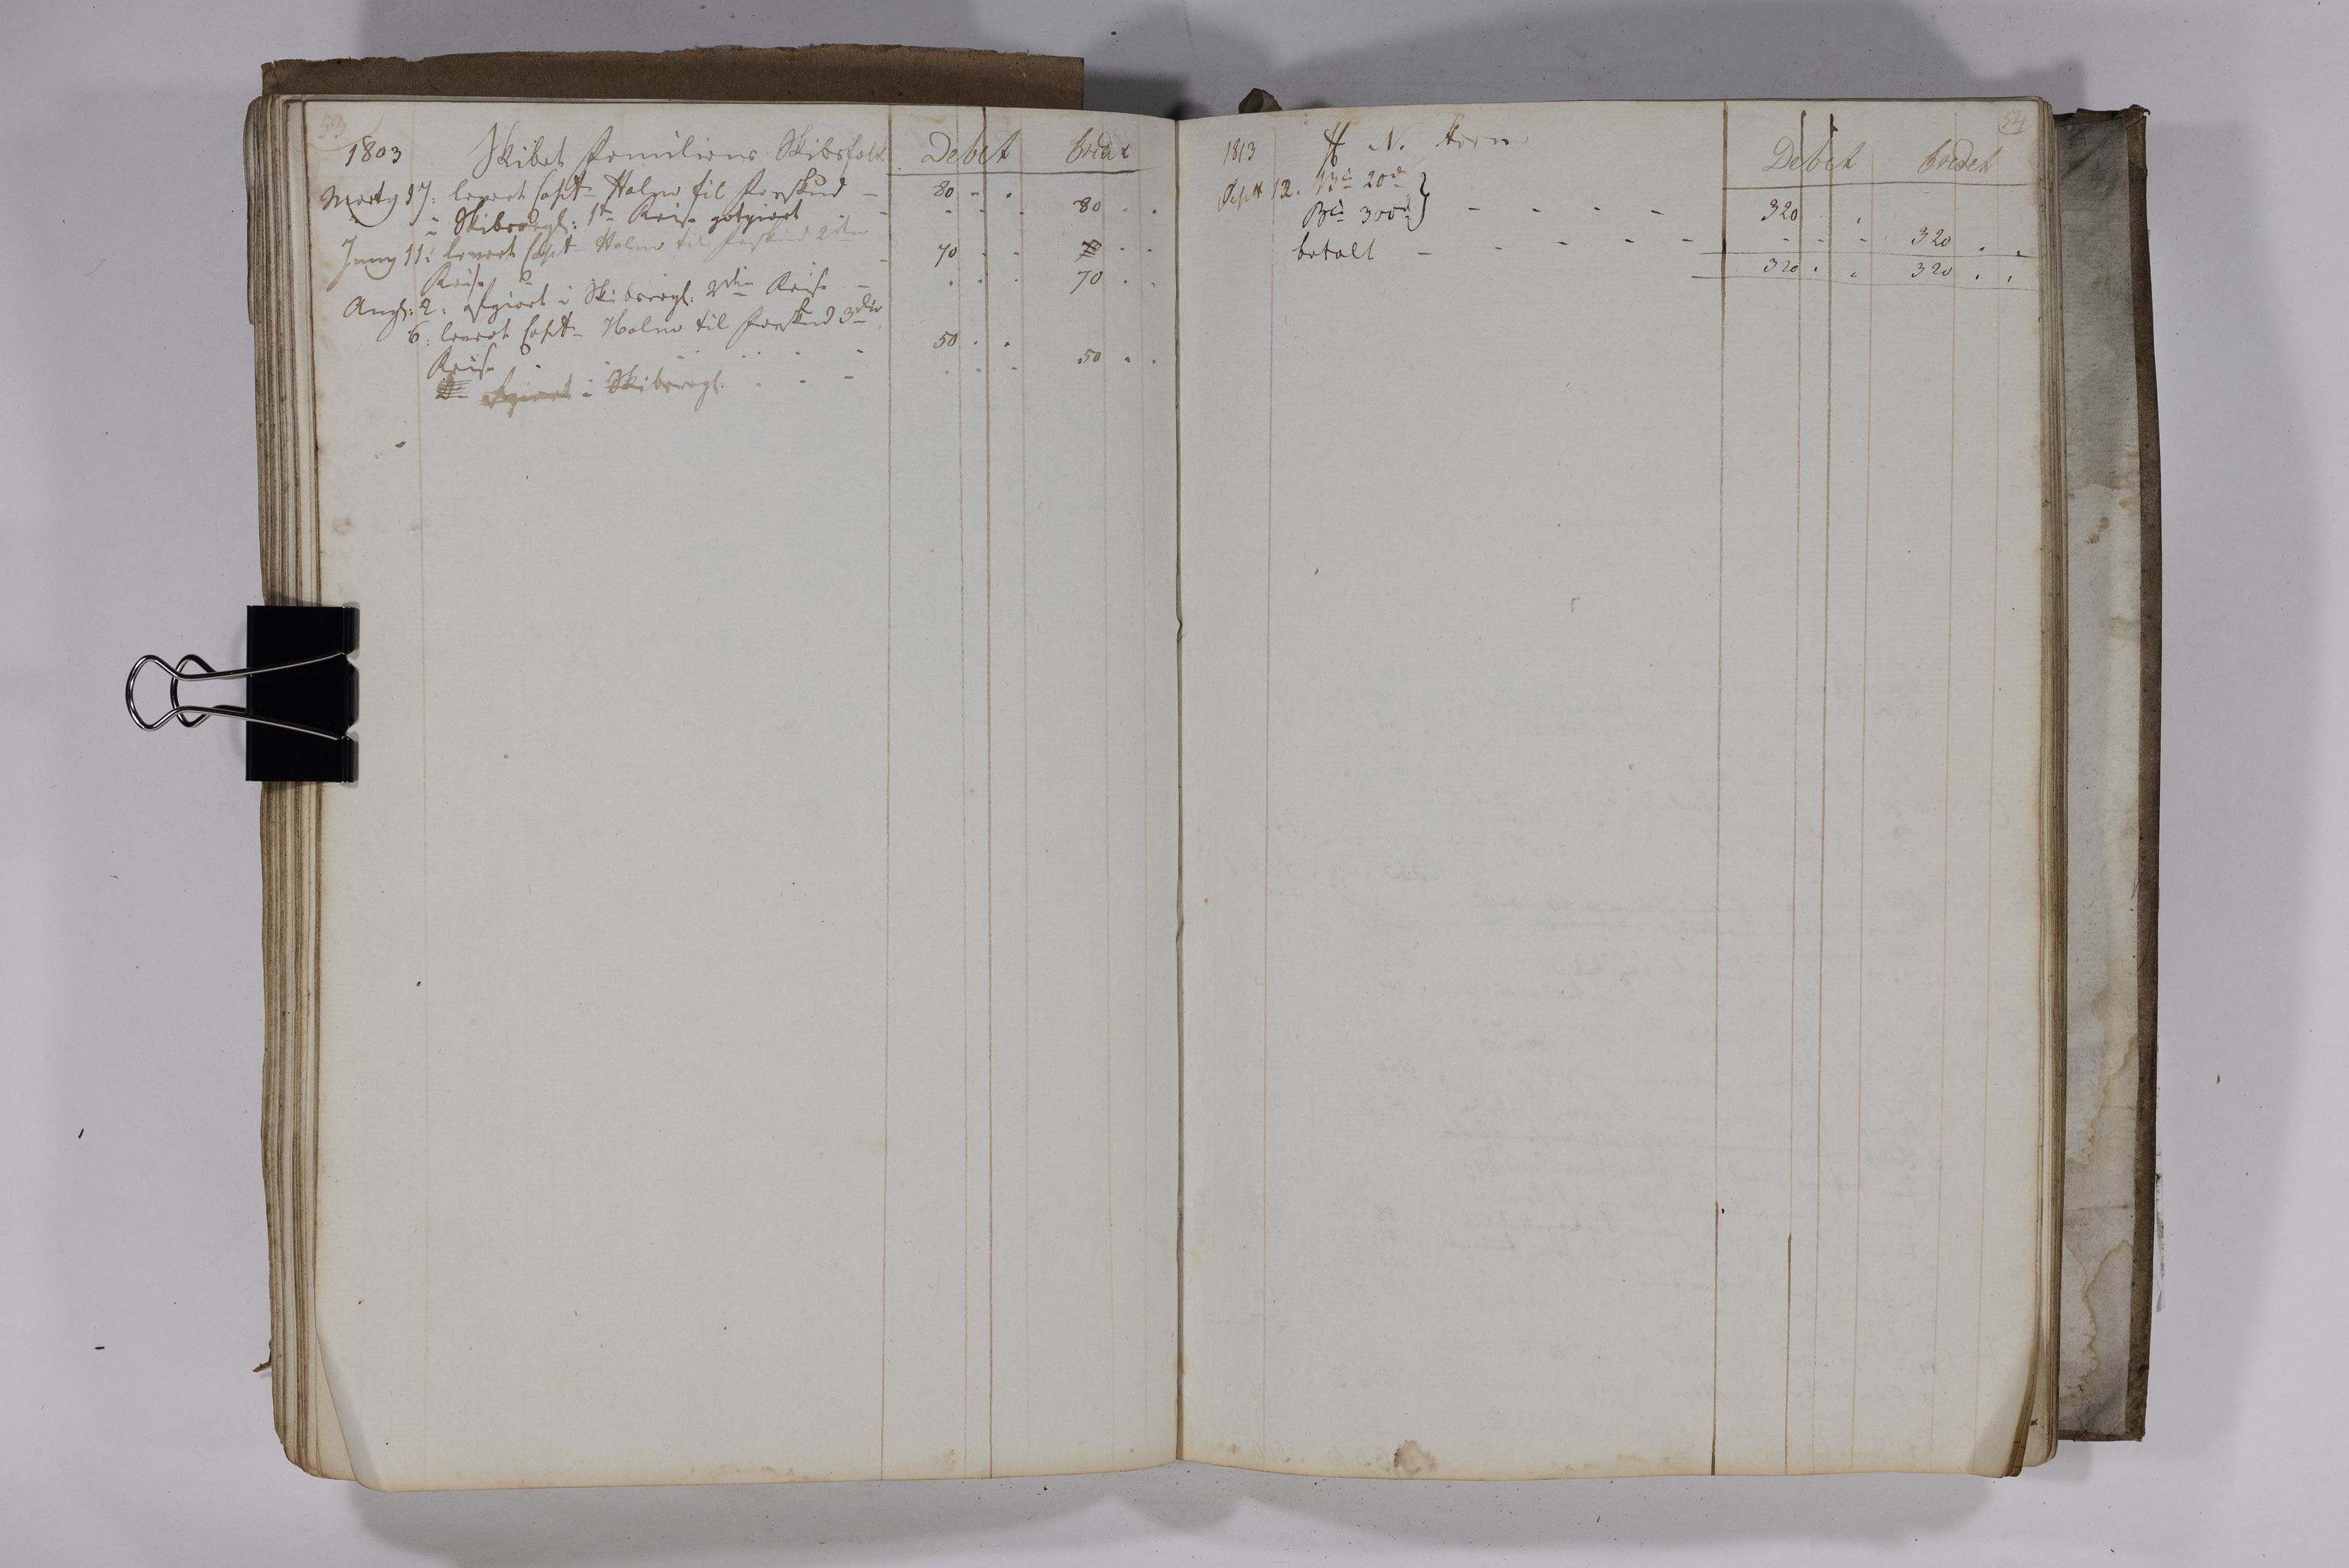 53
1803 Skibet Familiens Skibsfolk Debet Credit
Marty 17: leveret Capt Holm til Forskud - 80 - -
i Skibsregl: 1te Reise gotgiort - - - - 80 - -
Juny 11: leveret Capt Holm til Forskud 2den
Reise - 70 - -
Augs: 2: afgiort i Skibsregl: 2den Reise - - - - 70 - -
6: leveret Capt Holm til Forskud 3die
Reise - 50 - -
afgiort i Skibsregl. - - - - - - 50 - -
54
1813 H N. Horn Debet Credet
Sept 12. 20
300 } - - - - 320
betalt - - - - - - - - 320 - -
320 - - 320 - -